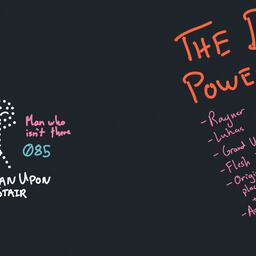 Man who
isn't there
085
AN UPON
TAIR
THE
POWE
- Rayner
- Lukas
- Grand
- Flesh
- Origi
pla